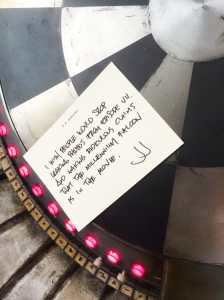 I WISH PEOPLE WOULD STOP
LEAKING PHOTOS FROM EPISODE VII.
AND MAKING RIDICULOUS CLAIMS
THAT THE MILLENNIUM FALCON
IS IN THE MOVIE.
JJ